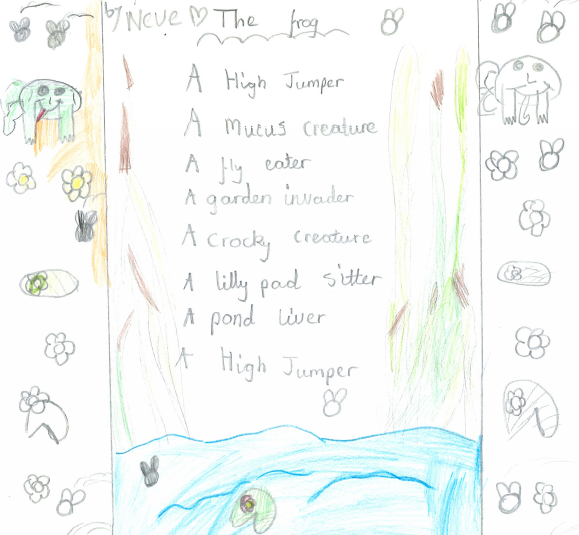 by Neve The frog
A High Jumper
A Mucus creature
A fly eater
A garden invader
A Crocky creature
A lilly pad sitter
A pond liver
A High Jumper